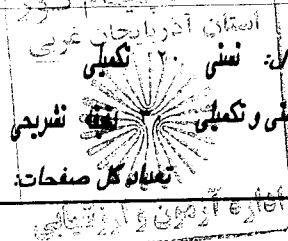 استان آذربایجان غربی
ل: تستی ۲۰ تکمیلی
تی و تکمیلی ۳۰ تشریحی
تعداد کل صفحات:
اداره آزمون و ارزشیابی